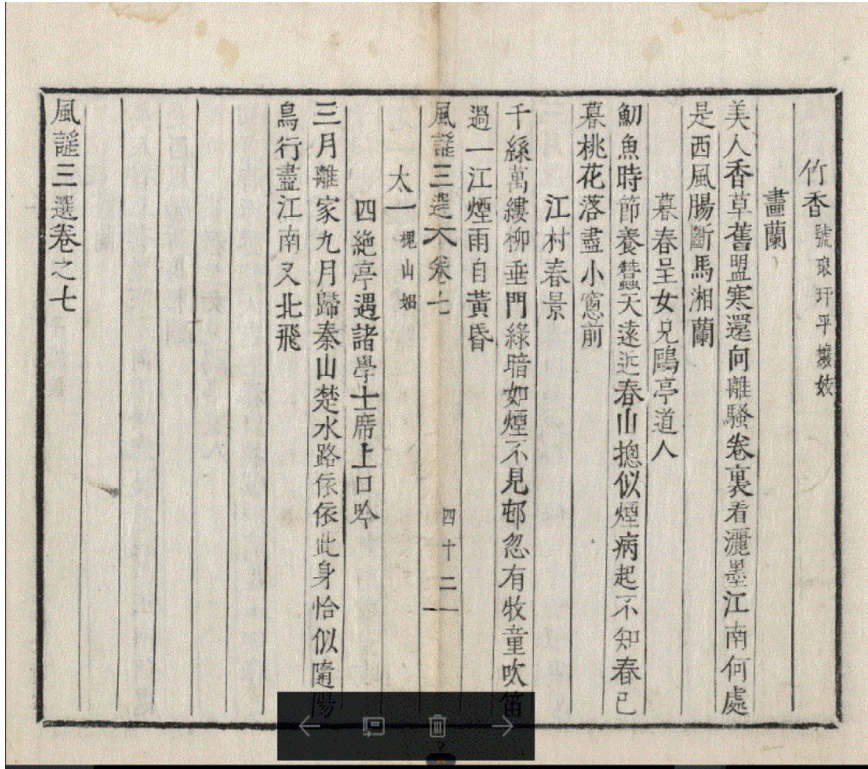 竹香 號琅玕平壤妓
畫蘭
美人香草舊盟寒還向離騷卷裏看灑墨江南何處
是西風腸斷馬湘蘭
暮春呈女兄鷗亭道人
魛魚時節養蠶天遠近春山摠似煙病起不知春已
暮桃花落盡小窓前
江村春景
千絲萬縷柳垂門綠暗如煙不見邨忽有牧童吹笛
過一江煙雨自黃昏
風謠三選 卷七 四十二
太一 槐山娼
四絶亭遇諸學士席上口吟
三月離家九月歸秦山楚水路依依此身恰似隨陽
鳥行盡江南又北飛
風謠三選卷之七